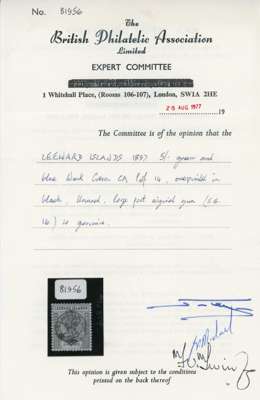 No. 81956
The
British Philatelic Association
Limited
EXPERT COMMITTEE
1 Whitehall Place, (Rooms 106-107), London, SW1A 2HE
23 AUG 1977 19
The Committee is of the opinion that the
LEEWARD ISLANDS 1897 5/- green and
blue Wmk Crown CA Perf 14, overprinted in
black, Unused, large part original gum (S.G.
16) is genuine.
81956
This opinion is given subject to the conditions
printed on the back thereof